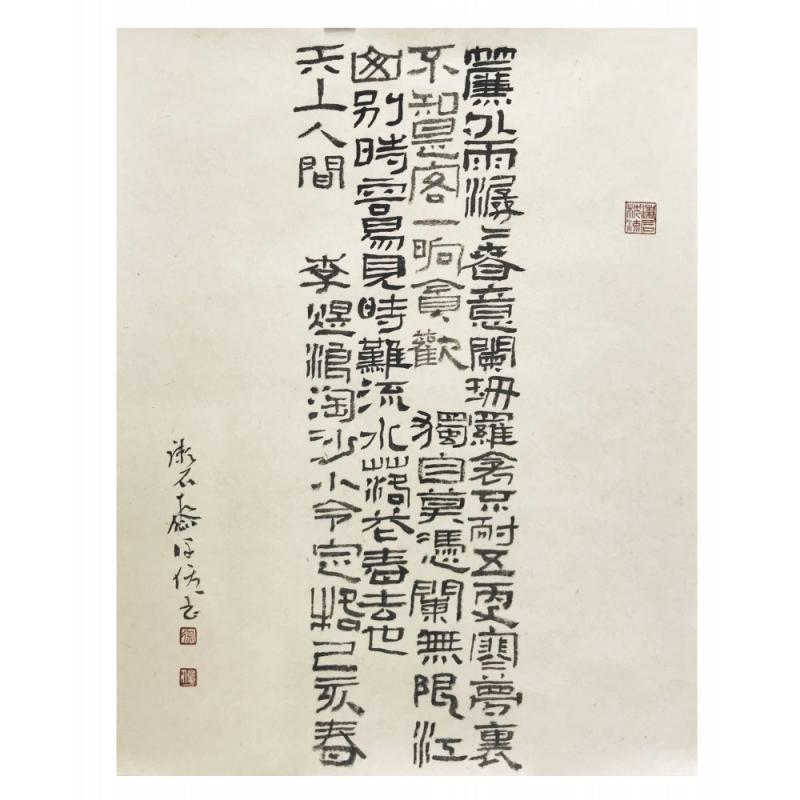 簾外雨潺〻春意闌珊羅衾不耐五更寒夢裏
不知是客一晌貪歡 獨自莫憑闌無限江
山別時容易見時難流水落花春去也
天上人間 李煜浪淘沙小令定格己亥春
漱石